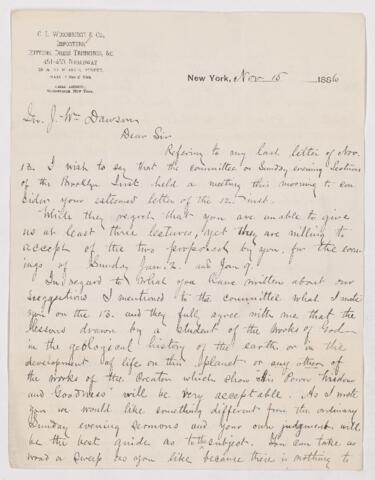 C. L. Woodbridge & Co.
Importers
Buttons, Dress Trimmings, &c.
451-453 Broadway
New York, Nov 15 1886
J. Wm Dawson
Dear Sir
Refering to my last letter of Nov.
13. I wish to say that the committee on Sunday evening lectures
of the Brooklyn Inst. held a meeting this morning to con-
sider your esteemed letter of the 12. inst.
While they regret that you are unable to give
us at least three lectures, yet they are willing to
accept of the two proposed by you, for the even-
ings of Sunday Jan. 2. and Jan 9.
In regard to what you have written about our
suggestions I mentioned to the committee what I wrote
you on the 13. and they fully agree with me that the
lessons drawn by a student of the works of God
in the geological history of the earth, or in the
development of life on this planet or any other of
the works of the Creator which show His Power Wisdom
and Goodness will be very acceptable. As I wrote
you we would like something different from the ordinary
Sunday evening sermons and your own judgment will
be the best guide as to the subject. You can take as
broad a sweep as you like because there is nothing to